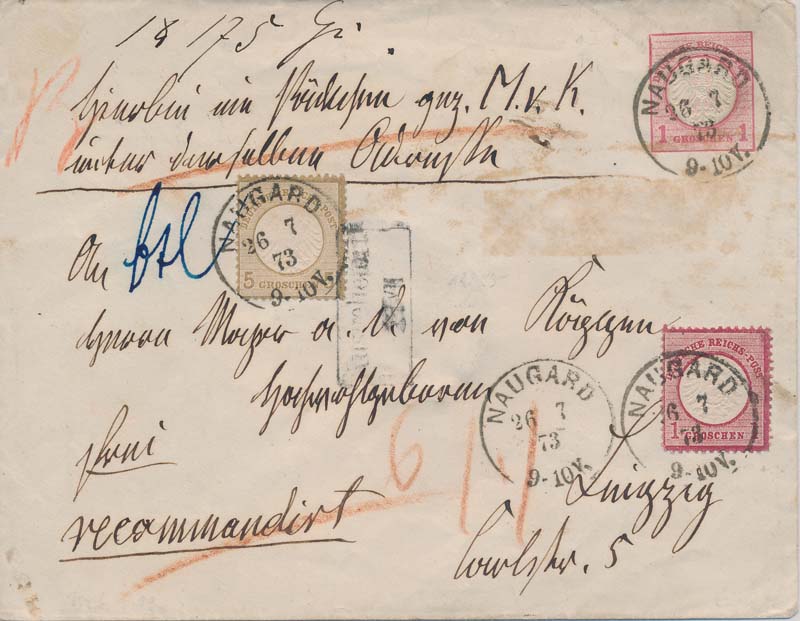 18 175 Gr.
Hierbei ein Päckchen gez. M. v. K.
unter derselben Adresse
DEUTSCHE REICHS-POST
1 GROSCHEN 1
NAUGARD
26 7
73
9-10V.
An
DEUTSCHE REICHS-POST
5 GROSCHEN
NAUGARD
26 7
73
9-10V.
Herrn Major a. D. von
Hochwohlgeboren
NAUGARD
26 7
73
9-10V.
DEUTSCHE REICHS-POST
1 GROSCHEN
NAUGARD
26 7
73
9-10V.
frei
6/1
Leipzig
recommandirt
Carlstr. 5